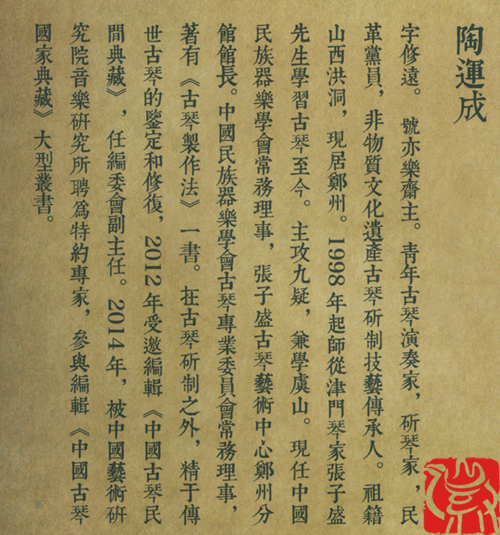 陶運成
字修遠。號亦樂齋主。青年古琴演奏家，斫琴家，民
革黨員，非物質文化遺產古琴斫制技藝傳承人。祖籍
山西洪洞，現居鄭州。1998年起師從津門琴家張子盛
先生學習古琴至今。主攻九疑，兼學虞山。現任中國
民族器樂學會常務理事，張子盛古琴藝術中心鄭州分
館館長。中國民族器樂學會古琴專業委員會常務理事，
著有《古琴製作法》一書。在古琴斫制之外，精于傳
世古琴的鑒定和修復，2012年受邀編輯《中國古琴民
間典藏》，任編委會副主任。2014年，被中國藝術研
究院音樂研究所聘爲特約專家，參與編輯《中國古琴
國家典藏》大型叢書。